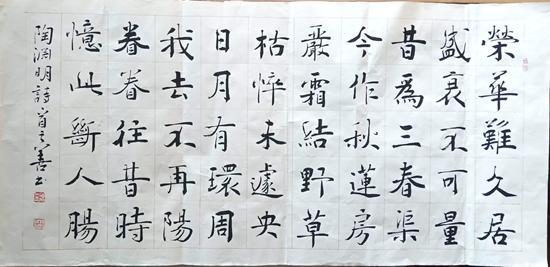 榮華難久居
盛衰不可量
昔爲三春渠
今作秋蓮房
嚴霜結野草
枯悴未遽央
日月有環周
我去不再陽
眷眷往昔時
憶此斷人腸
陶淵明詩首